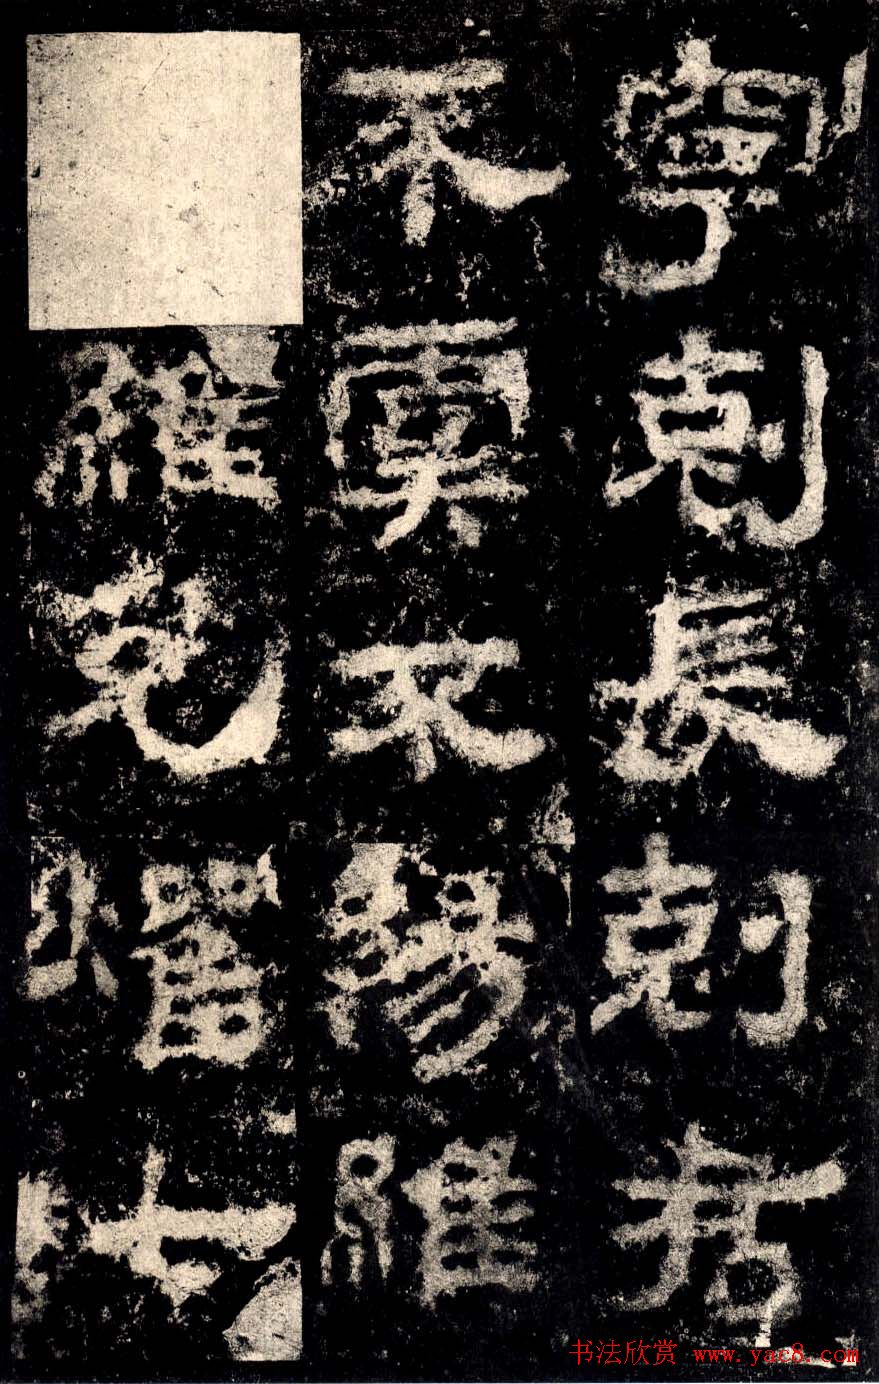 寧剋長剋君
不虞不陽維
維允燿此
书法欣赏 www.yac8.com